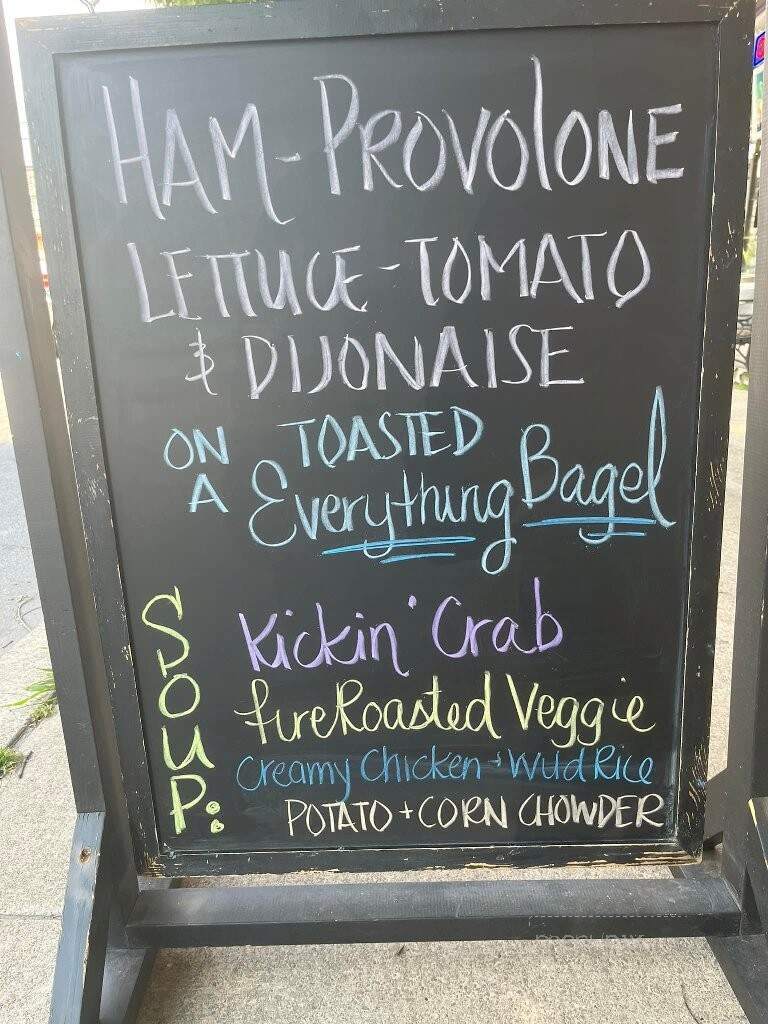 HAM - PROVOLONE
LETTUCE - TOMATO
& DIJONAISE
ON A TOASTED
Everything Bagel
SOUP:
Kickin' Crab
fire Roasted Veggie
Creamy Chicken + Wild Rice
POTATO + CORN CHOWDER